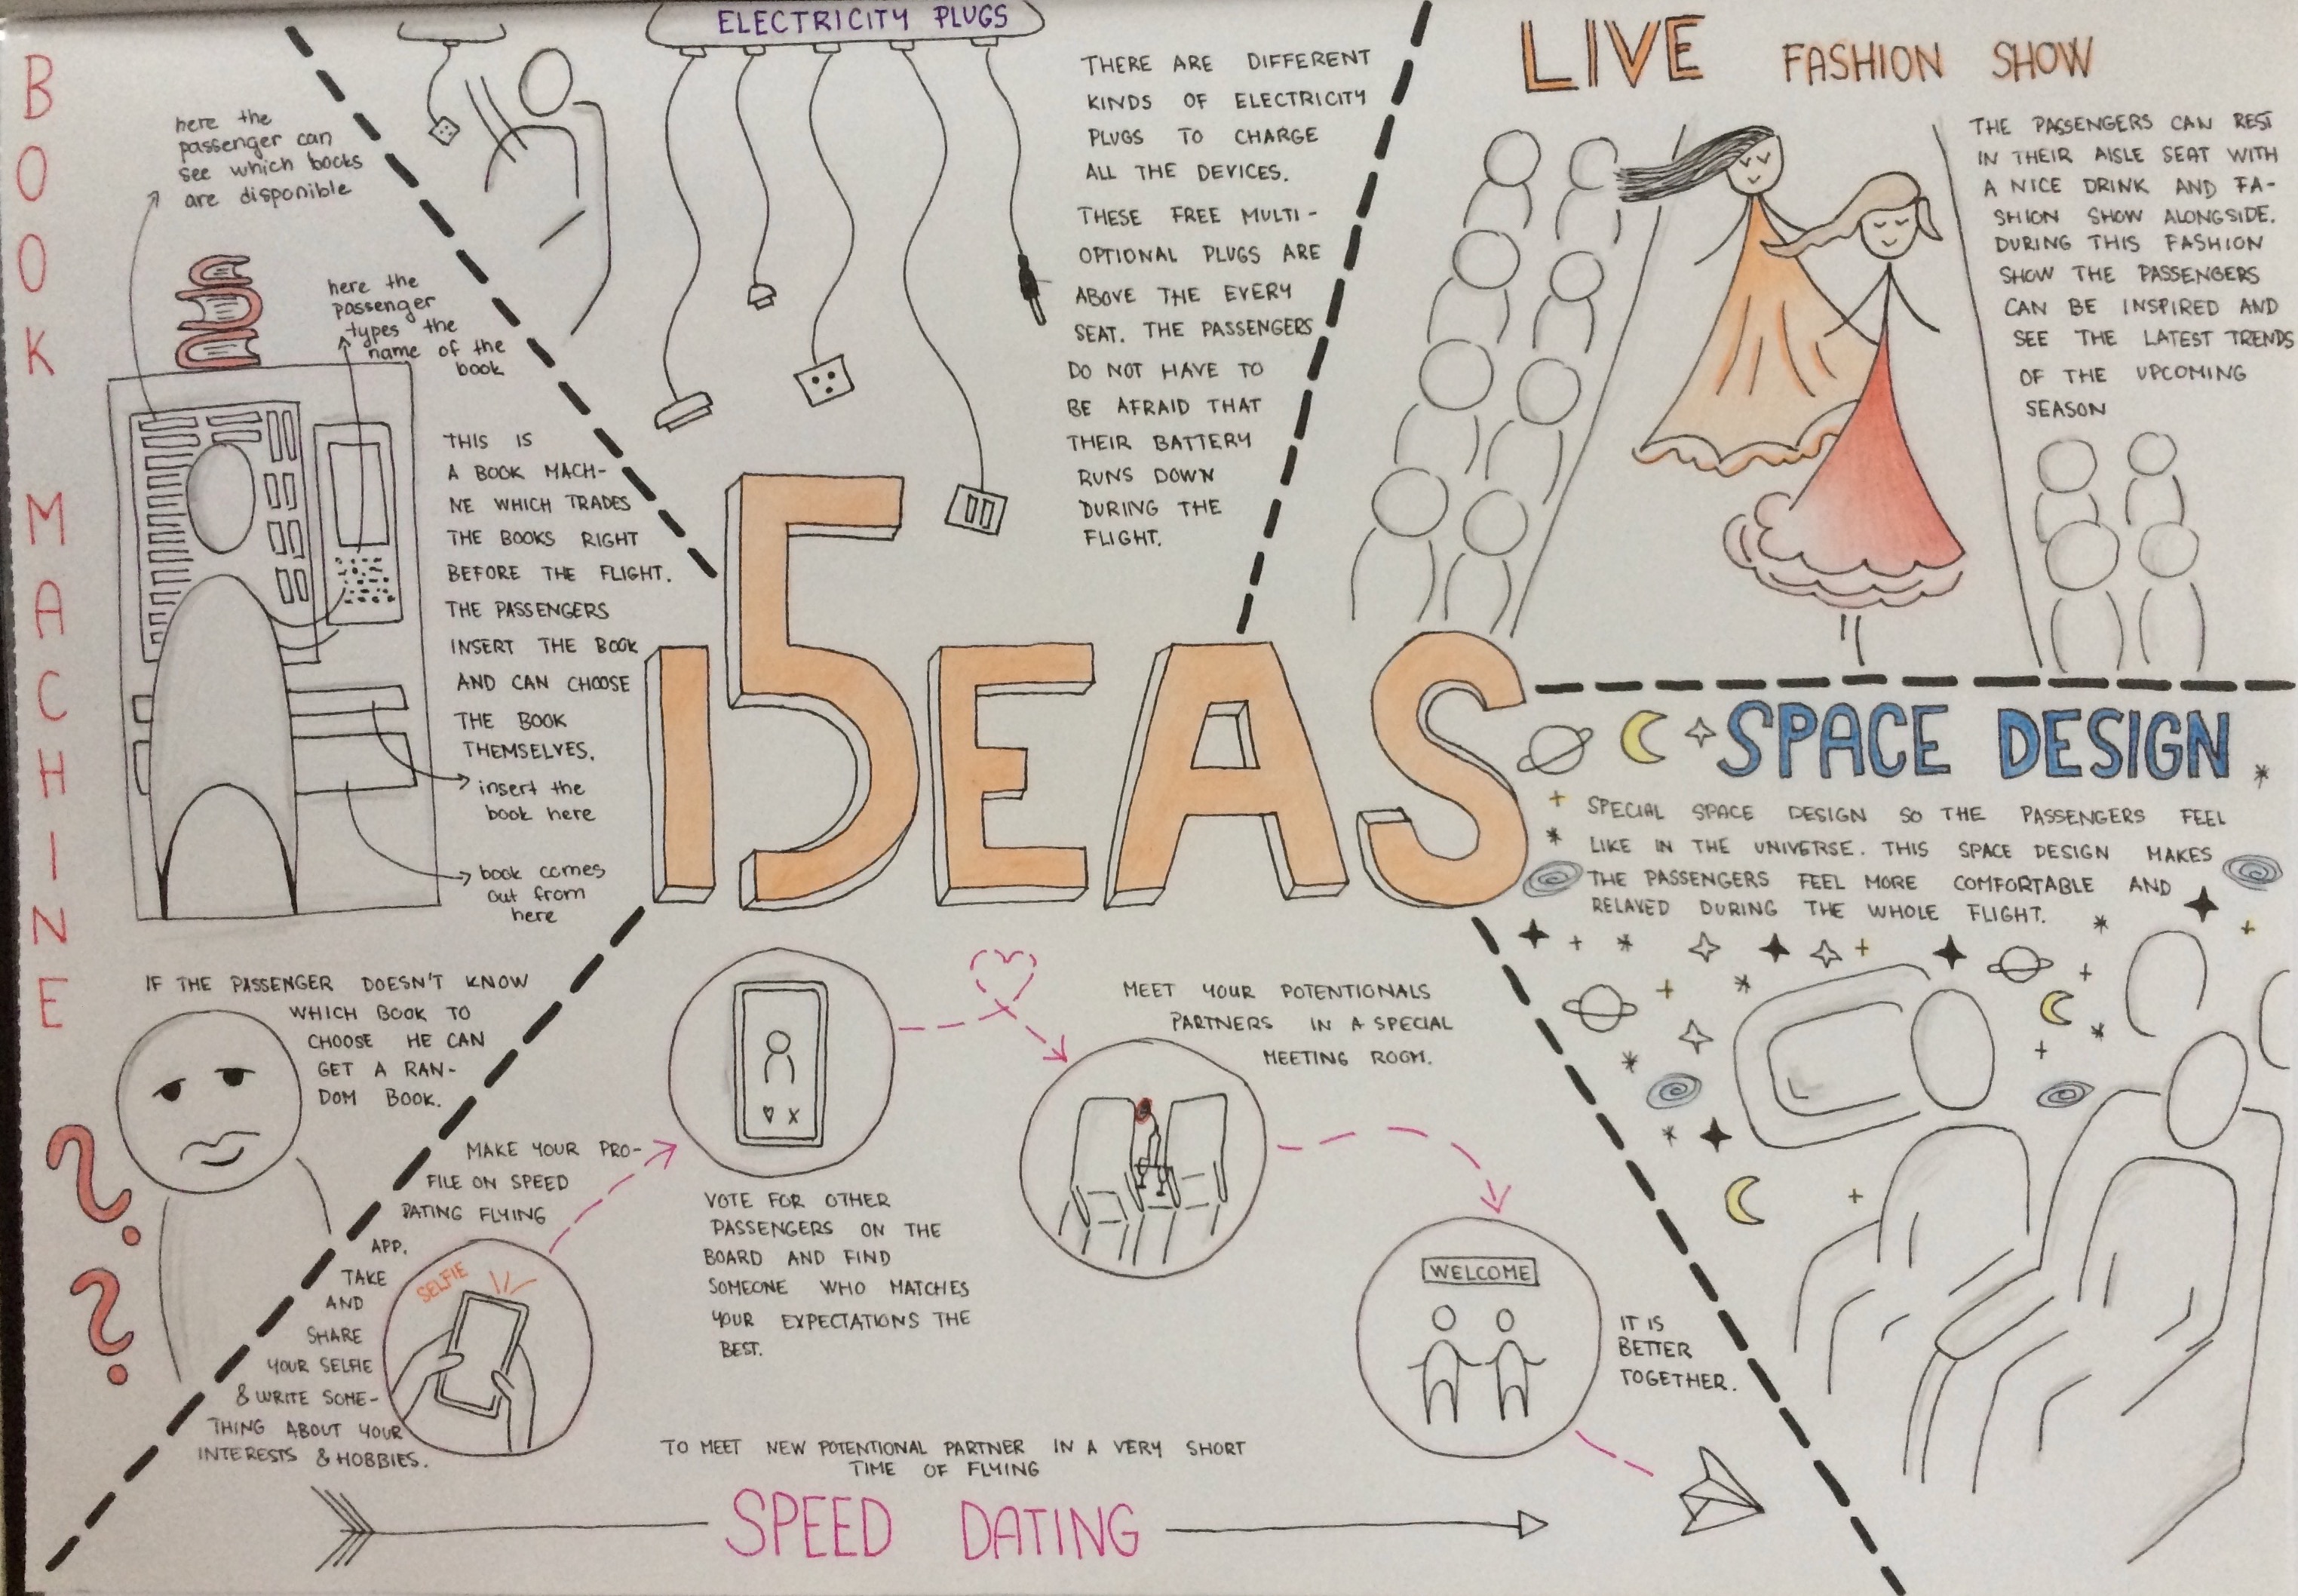 BOOK MACHINE
here the
passenger can
see which books
are disponible
here the
passenger
types the
name of the
book
THIS IS
A BOOK MACH-
NE WHICH TRADES
THE BOOKS RIGHT
BEFORE THE FLIGHT.
THE PASSENGERS
INSERT THE BOOK
AND CAN CHOOSE
THE BOOK
THEMSELVES.
insert the
book here
book comes
out from
here
IF THE PASSENGER DOESN'T KNOW
WHICH BOOK TO
CHOOSE HE CAN
GET A RAN-
DOM BOOK.
? ?
ELECTRICITY PLUGS
THERE ARE DIFFERENT
KINDS OF ELECTRICITY
PLUGS TO CHARGE
ALL THE DEVICES.
THESE FREE MULTI-
OPTIONAL PLUGS ARE
ABOVE THE EVERY
SEAT. THE PASSENGERS
DO NOT HAVE TO
BE AFRAID THAT
THEIR BATTERY
RUNS DOWN
DURING THE
FLIGHT.
LIVE FASHION SHOW
THE PASSENGERS CAN REST
IN THEIR AISLE SEAT WITH
A NICE DRINK AND FA-
SHION SHOW ALONGSIDE.
DURING THIS FASHION
SHOW THE PASSENGERS
CAN BE INSPIRED AND
SEE THE LATEST TRENDS
OF THE UPCOMING
SEASON
I5EAS
SPACE DESIGN
SPECIAL SPACE DESIGN SO THE PASSENGERS FEEL
LIKE IN THE UNIVERSE. THIS SPACE DESIGN MAKES
THE PASSENGERS FEEL MORE COMFORTABLE AND
RELAXED DURING THE WHOLE FLIGHT.
MAKE YOUR PRO-
FILE ON SPEED
DATING FLYING
APP.
TAKE
AND
SHARE
YOUR SELFIE
& WRITE SOME-
THING ABOUT YOUR
INTERESTS & HOBBIES.
SELFIE
VOTE FOR OTHER
PASSENGERS ON THE
BOARD AND FIND
SOMEONE WHO MATCHES
YOUR EXPECTATIONS THE
BEST.
MEET YOUR POTENTIONALS
PARTNERS IN A SPECIAL
MEETING ROOM.
WELCOME
IT IS
BETTER
TOGETHER.
TO MEET NEW POTENTIONAL PARTNER IN A VERY SHORT
TIME OF FLYING
SPEED DATING